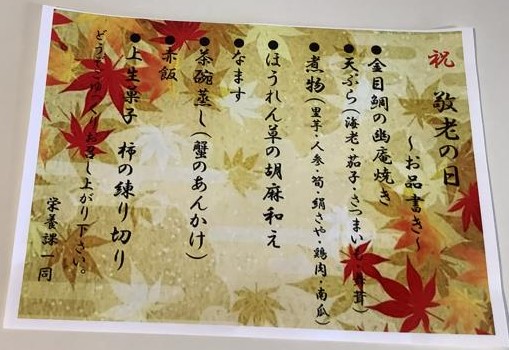 祝 敬老の日
～お品書き～
●金目鯛の幽庵焼き
●天ぷら(海老・茄子・さつまいも・舞茸)
●煮物(里芋・人参・筍・絹さや・鶏肉・南瓜)
●ほうれん草の胡麻和え
●なます
●茶碗蒸し(蟹のあんかけ)
●赤飯
●上生菓子 柿の練り切り
どうぞごゆっくりお召し上がり下さい。
栄養課一同